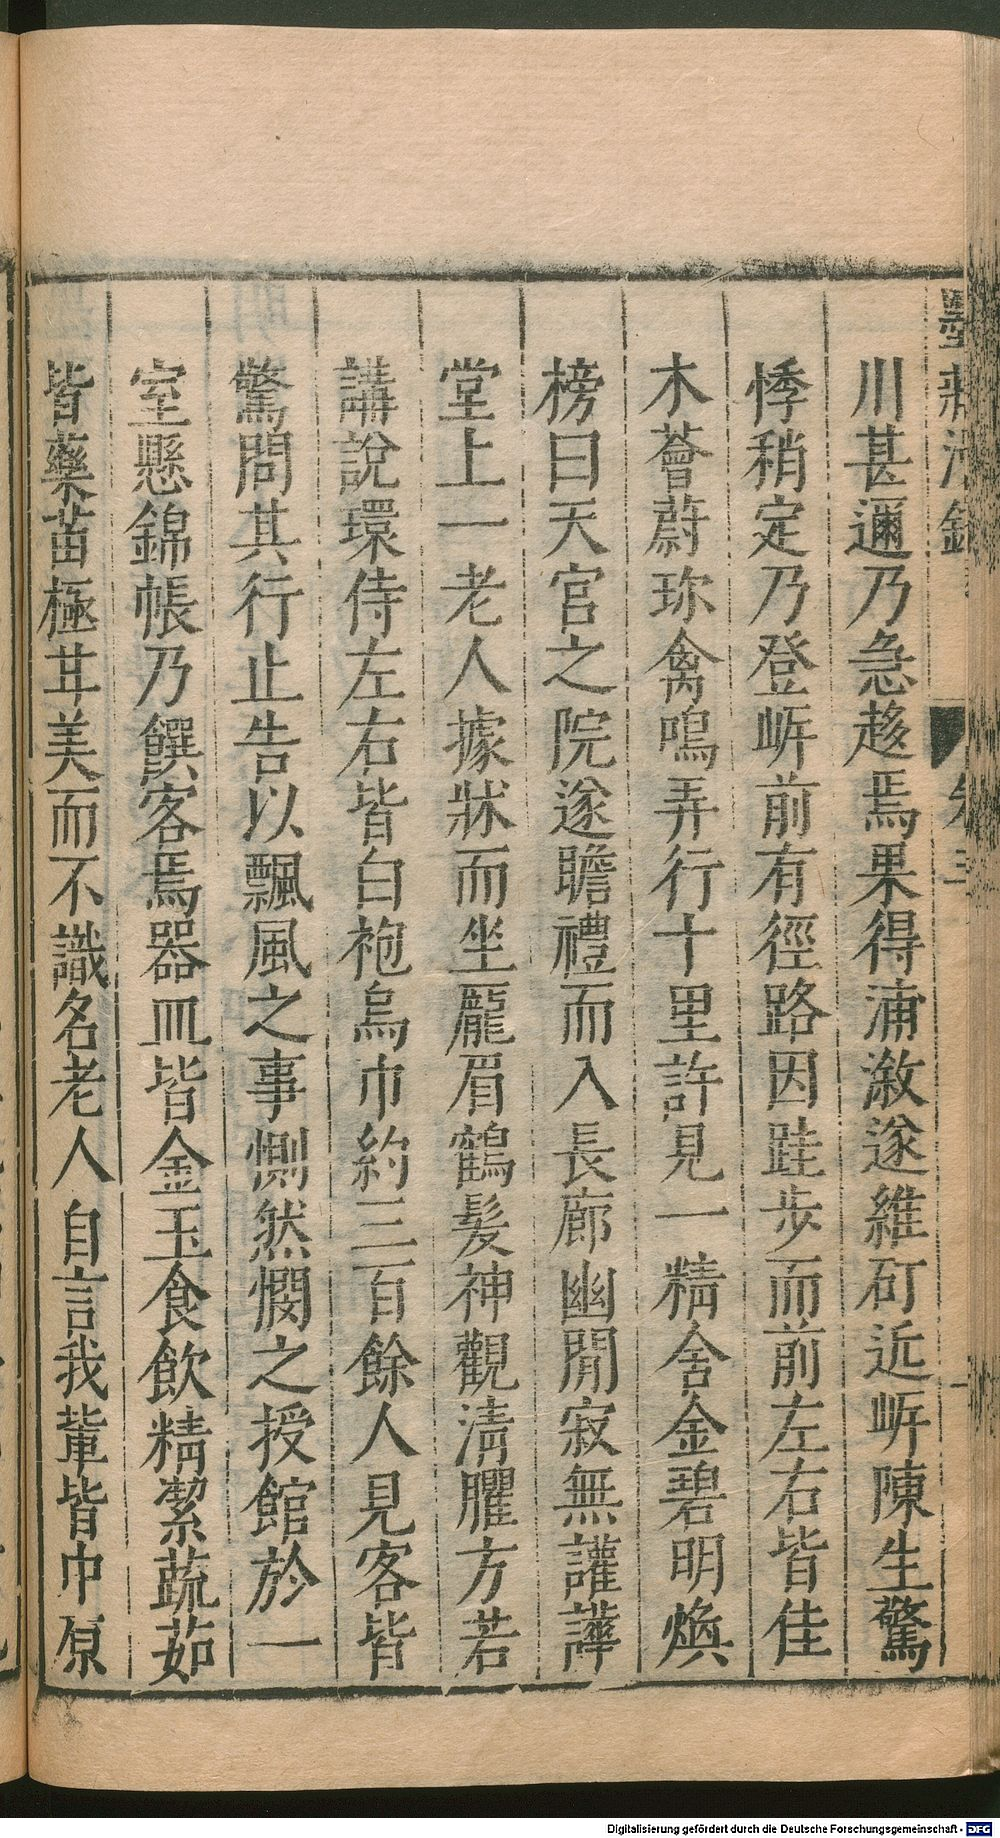 川甚邇乃急趍焉果得浦溆遂維矴近㟁陳生驚
悸稍定乃登㟁前有徑路因跬步而前左右皆佳
木薈蔚珎禽鳴弄行十里許見一精舍金碧明煥
榜曰天宮之院遂瞻禮而入長廊幽閒寂無讙譁
堂上一老人據牀而坐龎眉鶴髪神觀淸臞方若
講說環侍左右皆白袍烏巾約三百餘人見客皆
驚問其行止告以飄風之事惻然憫之授館於一
室懸錦帳乃饌客焉器皿皆金玉食飲精潔蔬茹
皆藥苗極甘美而不識名老人自言我軰皆中原
Digitalisierung gefördert durch die Deutsche Forschungsgemeinschaft - DFG